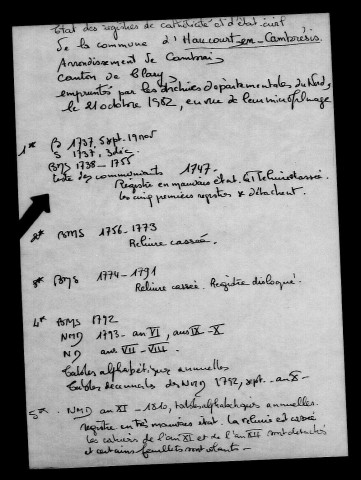 Etat des registres de catholicité et d'état civil
de la commune d'Haucourt-en-Cambrésis.
Arrondissement de Cambrai,
canton de Clary,
empruntés par les Archives départementales du Nord,
le 21 octobre 1982, en vue de leur microfilmage
1* B 1737, sept. 19 nov
S 1737, 3 déc.
BMS 1738-1755
liste des communiants 1747-
Registre en mauvais état. La reliure cassée.
les cinq premiers registres se détachent.
2* BMS 1756-1773
Reliure cassée.
3* BMS 1774-1791
Reliure cassée. Registre disloqué.
4* BMS 1792
NMD 1793-an VI, ans IX-X
ND ans VII-VIII.
Tables alphabétiques annuelles
Tables décennales des NMD 1792, sept.-an X-
5* . NMD an XI-1810, tables alphabétiques annuelles.
registre en très mauvais état. La reliure est cassée
les cahiers de l'an XI et de l'an XII sont détachés
et certains feuillets sont volants-